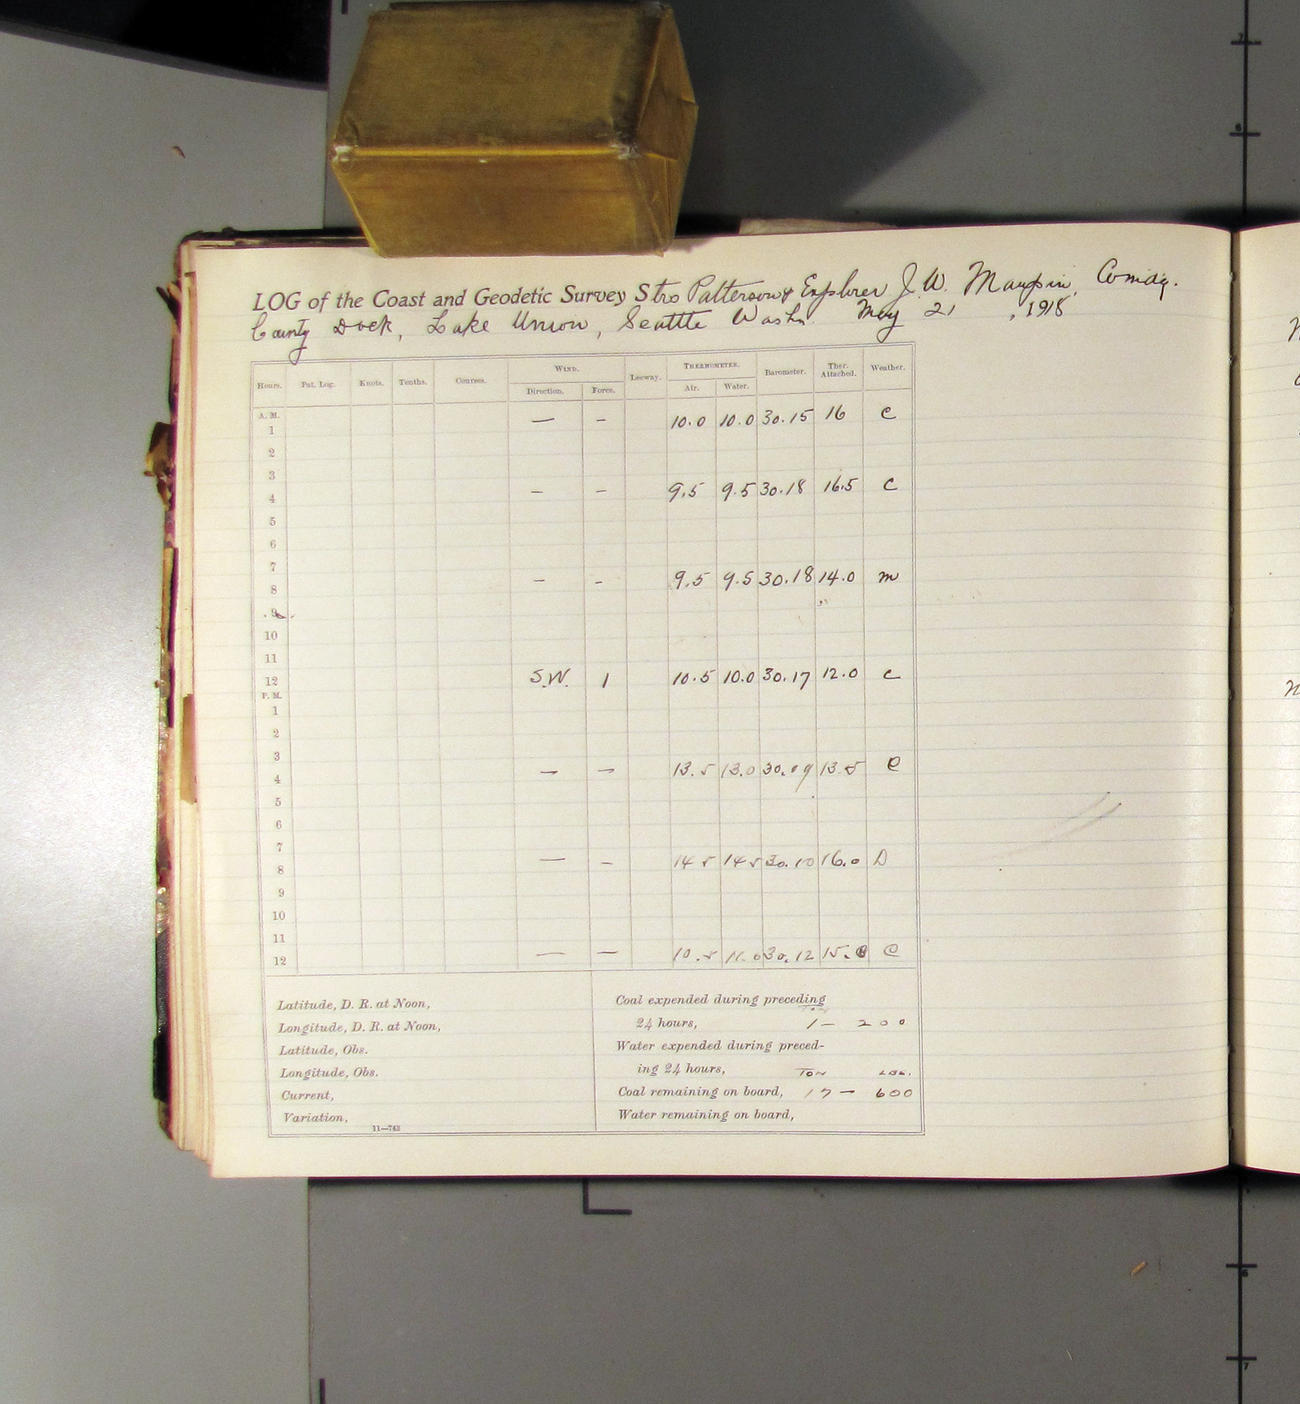 LOG of the Coast and Geodetic Survey Strs Patterson & Explorer J. W. Maupin, Comdg.
County Dock, Lake Union, Seattle Wash. May 21, 1918
Hours. Pat. Log. Knots. Tenths. Courses. Wind. Leeway. Thermometer. Barometer. Ther. Attached. Weather.
Direction. Force. Air. Water.
A. M.
1 — – 10.0 10.0 30.15 16 c
2
3
4 – – 9.5 9.5 30.18 16.5 c
5
6
7
8 – – 9.5 9.5 30.18 14.0 m
9
10
11
12 S.W. 1 10.5 10.0 30.17 12.0 c
P. M.
1
2
3
4 — — 13.5 13.0 30.09 13.5 c
5
6
7
8 — – 14.5 14.5 30.10 16.0 D
9
10
11
12 — — 10.5 11.0 30.12 15.0 C
Latitude, D. R. at Noon,
Longitude, D. R. at Noon,
Latitude, Obs.
Longitude, Obs.
Current,
Variation,
11—743
Coal expended during preceding
Ton
24 hours, 1 — 200
Water expended during preced-
ing 24 hours, Ton Lbs.
Coal remaining on board, 17 — 600
Water remaining on board,
7
6
6
7